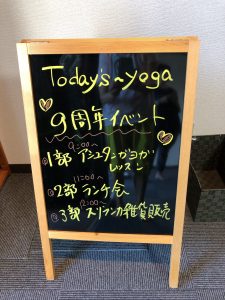 Todays~yoga
9周年イベント
9:00~
1部 アシュタンガヨガ
レッスン
11:00~
2部 ランチ会
12:00~
3部 スリランカ雑貨販売